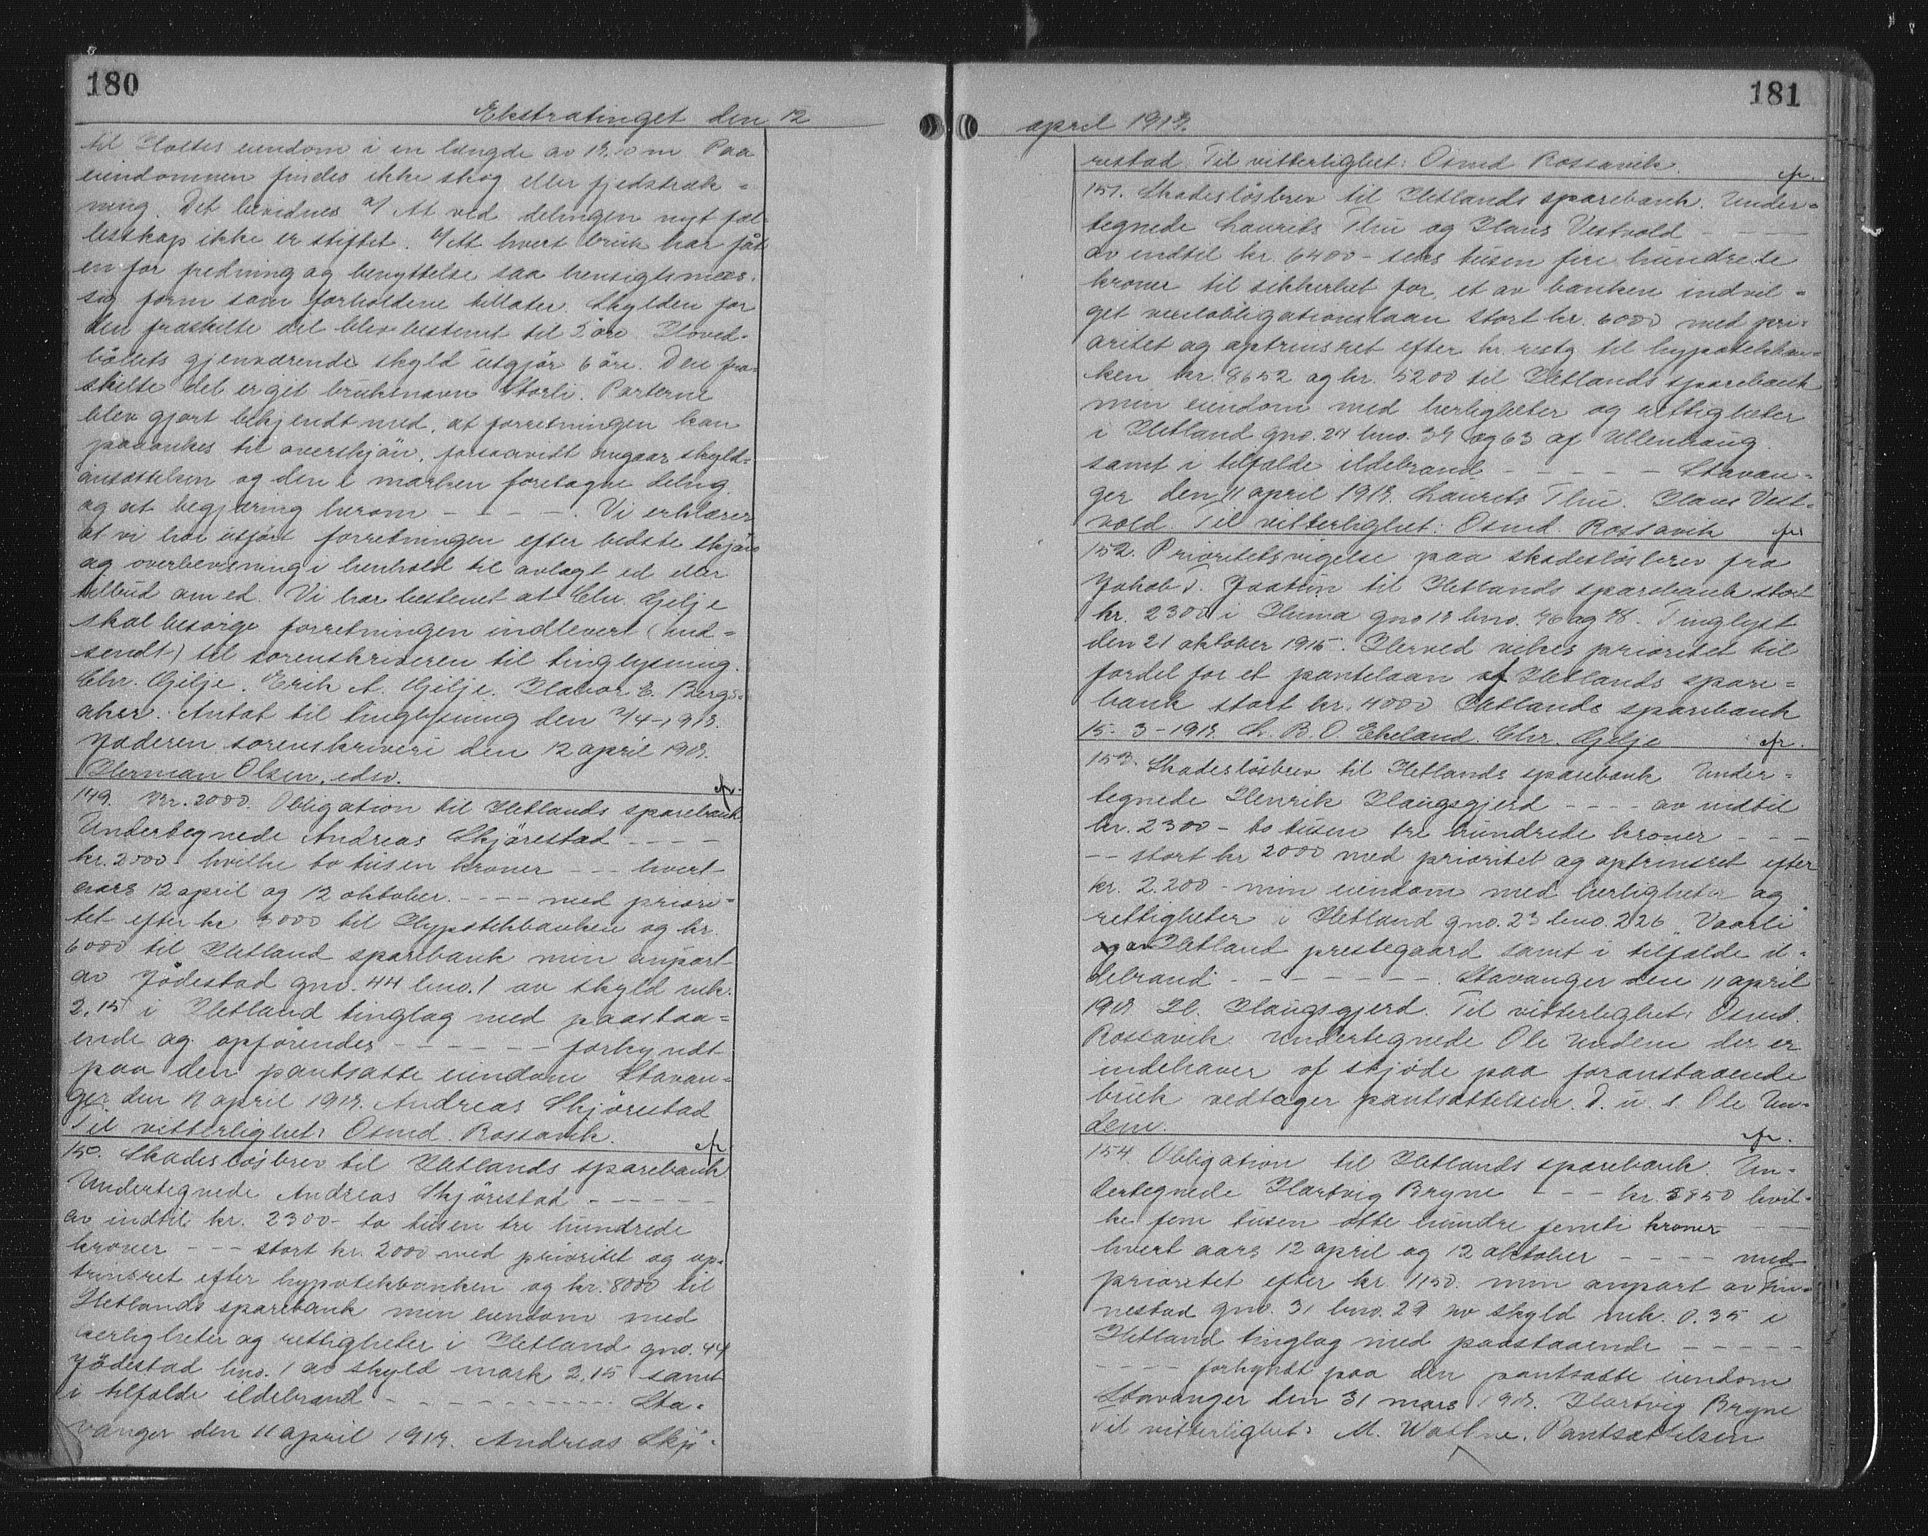 180
Ekstratinget den 12
til Holtes eiendom i en længde av m Paa
eiendommen findes ikke skog eller fjedstræk-
ning. Det bevidnes a/ At ved delingen nyt fæl-
lesskap ikke er stiftet. At hvert bruk har fåt
en for fredning og benyttelse saa hensigtsmæs-
sig form som forholdene tillater. Skylden for
den fraskilte del blev bestemt til 5 öre. Hoved-
bölets gjenværende skyld utgjör 6 öre. Den fra-
skilte del er git bruksnavn Storli. Parterne
blev gjort bekjendt med, at forretningen kan
paaankes til overskjön, forsaavidt angaar skyld-
ansættelsen og den i marken foretagne deling
og at begjæring herom - - - -. Vi erklærer
at vi har utfört forretningen efter bedste skjön
og overbevisning i henhold til avlagt ed eller
tilbud om ed. Vi har bestemt at Chr. Gilje
skal besörge forretningen indlevert (ind-
sendt) til sorenskriveren til tinglysning.
Chr. Gilje. Erik A. Gilje. Halvor E. Bergs-
aker. Antat til tinglysning den 2/4-1918.
Jæderen sorenskriveri den 12 april 1918.
Herman Olsen, edsv.
149. Kr. 2000. Obligation til Hetlands sparebank
Undertegnede Andreas Skjörestad - - - -
kr. 2000 - hvilke to tusen kroner - - - hvert
aars 12 april og 12 oktober. - - - - med priori-
tet efter kr 3000 til Hypotekbanken og kr.
6000 til Hetland sparebank min anpart
av Jödestad gno. 44 bno. 1 av skyld mk.
2,15 i Hetland tinglag med paastaa-
ende og opförendes - - - - - - forkyndt
paa den pantsatte eiendom Stavan-
ger den 11 april 1918. Andreas Skjörestad
Til vitterlighet: Osmd. Rossavik.
150. Skadeslösbrev til Hetlands sparebank
Undertegnede Andreas Skjörestad - - - - - -
av indtil kr. 2300 - to tusen tre hundrede
kroner - - - stort kr. 2000 med prioritet og op-
trinsret efter hypotekbanken og kr. 8000 til
Hetlands sparebank min eiendom med
herligheter og rettigheter i Hetland gno. 44
Jödestad bno. 1 av skyld mark 2,15 samt
i tilfælde ildebrand - - - - - - - - Sta-
vanger den 11 april 1918. Andreas Skjö-
181
april 1918.
restad Til vitterlighet: Osmd Rossavik.
151. Skadeslösbrev til Hetlands sparebank. Under-
tegnede Laurits Thu og Hans Vestvold - - - -
av indtil kr. 6400 - seks tusen fire hundrede
kroner til sikkerhet for et av banken indvil-
get vekselobligationslaan stort kr. 6000 med pri-
oritet og optrinsret efter kr. restg. til hypotekban-
ken kr 8652 og kr. 5200 til Hetlands sparebank
min eiendom med herligheter og rettigheter
i Hetland gno. 24 bno. 34 og 63 af Ullenhaug
samt i tilfælde ildebrand - - - - - Stavan-
ger den 11 april 1918. Laurits Thu. Hans Vest-
vold Til vitterlighet: Osmd. Rossavik
152. Prioritetsvigelse paa skadeslösbrev fra
Jakob T. Jaatun til Hetlands sparebank stort
kr. 2300 i Hinna gno 18 bno. og. Tinglyst
den 21 oktober 1915. Herved vikes prioritet til
fordel for et pantelaan af Hetlands spare-
bank stort kr. 4000 Hetlands sparebank
15-3-1918. L. B. O. Ekeland. Chr. Gilje
153. Skadeslösbrev til Hetlands sparebank Under-
tegnede Henrik Haugsgjerd - - - - av indtil
kr. 2300 - to tusen tre hundrede kroner - - -
- - stort kr 2000 med prioritet og optrinsret efter
kr. 2.200 - min eiendom med herligheter og
rettigheter i Hetland gno. 23 bno. 226 "Vaarli"
av Hetland prestegaard samt i tilfælde il-
debrand - - - - - - - - . Stavanger den 11 april
1918 H. Haugsgjerd. Til vitterlighet: Osmd.
Rossavik Undertegnede Ole Undem der er
indehaver af skjöde paa foranstaaende
bruk vedtager pantsættelsen. D. u. s. Ole Un-
dem.
154. Obligation til Hetlands sparebank. Un-
dertegnede Hartvig Bryne - - - kr. 5850 hvil-
ke fem tusen otte hundre femti kroner - - -
hvert aars 12 april og 12 oktober - - - - med
prioritet efter kr 1150. min anpart av
nestad gno. 31 bno. 29 av skyld mk. 0.35 i
Hetland tinglag med paastaaende - - - - -
- - - - forkyndt paa den pantsatte eiendom
Stavanger den 31 mars 1918. Hartvig Bryne
Til vitterlighet: M. Wathne. Pantsættelsen